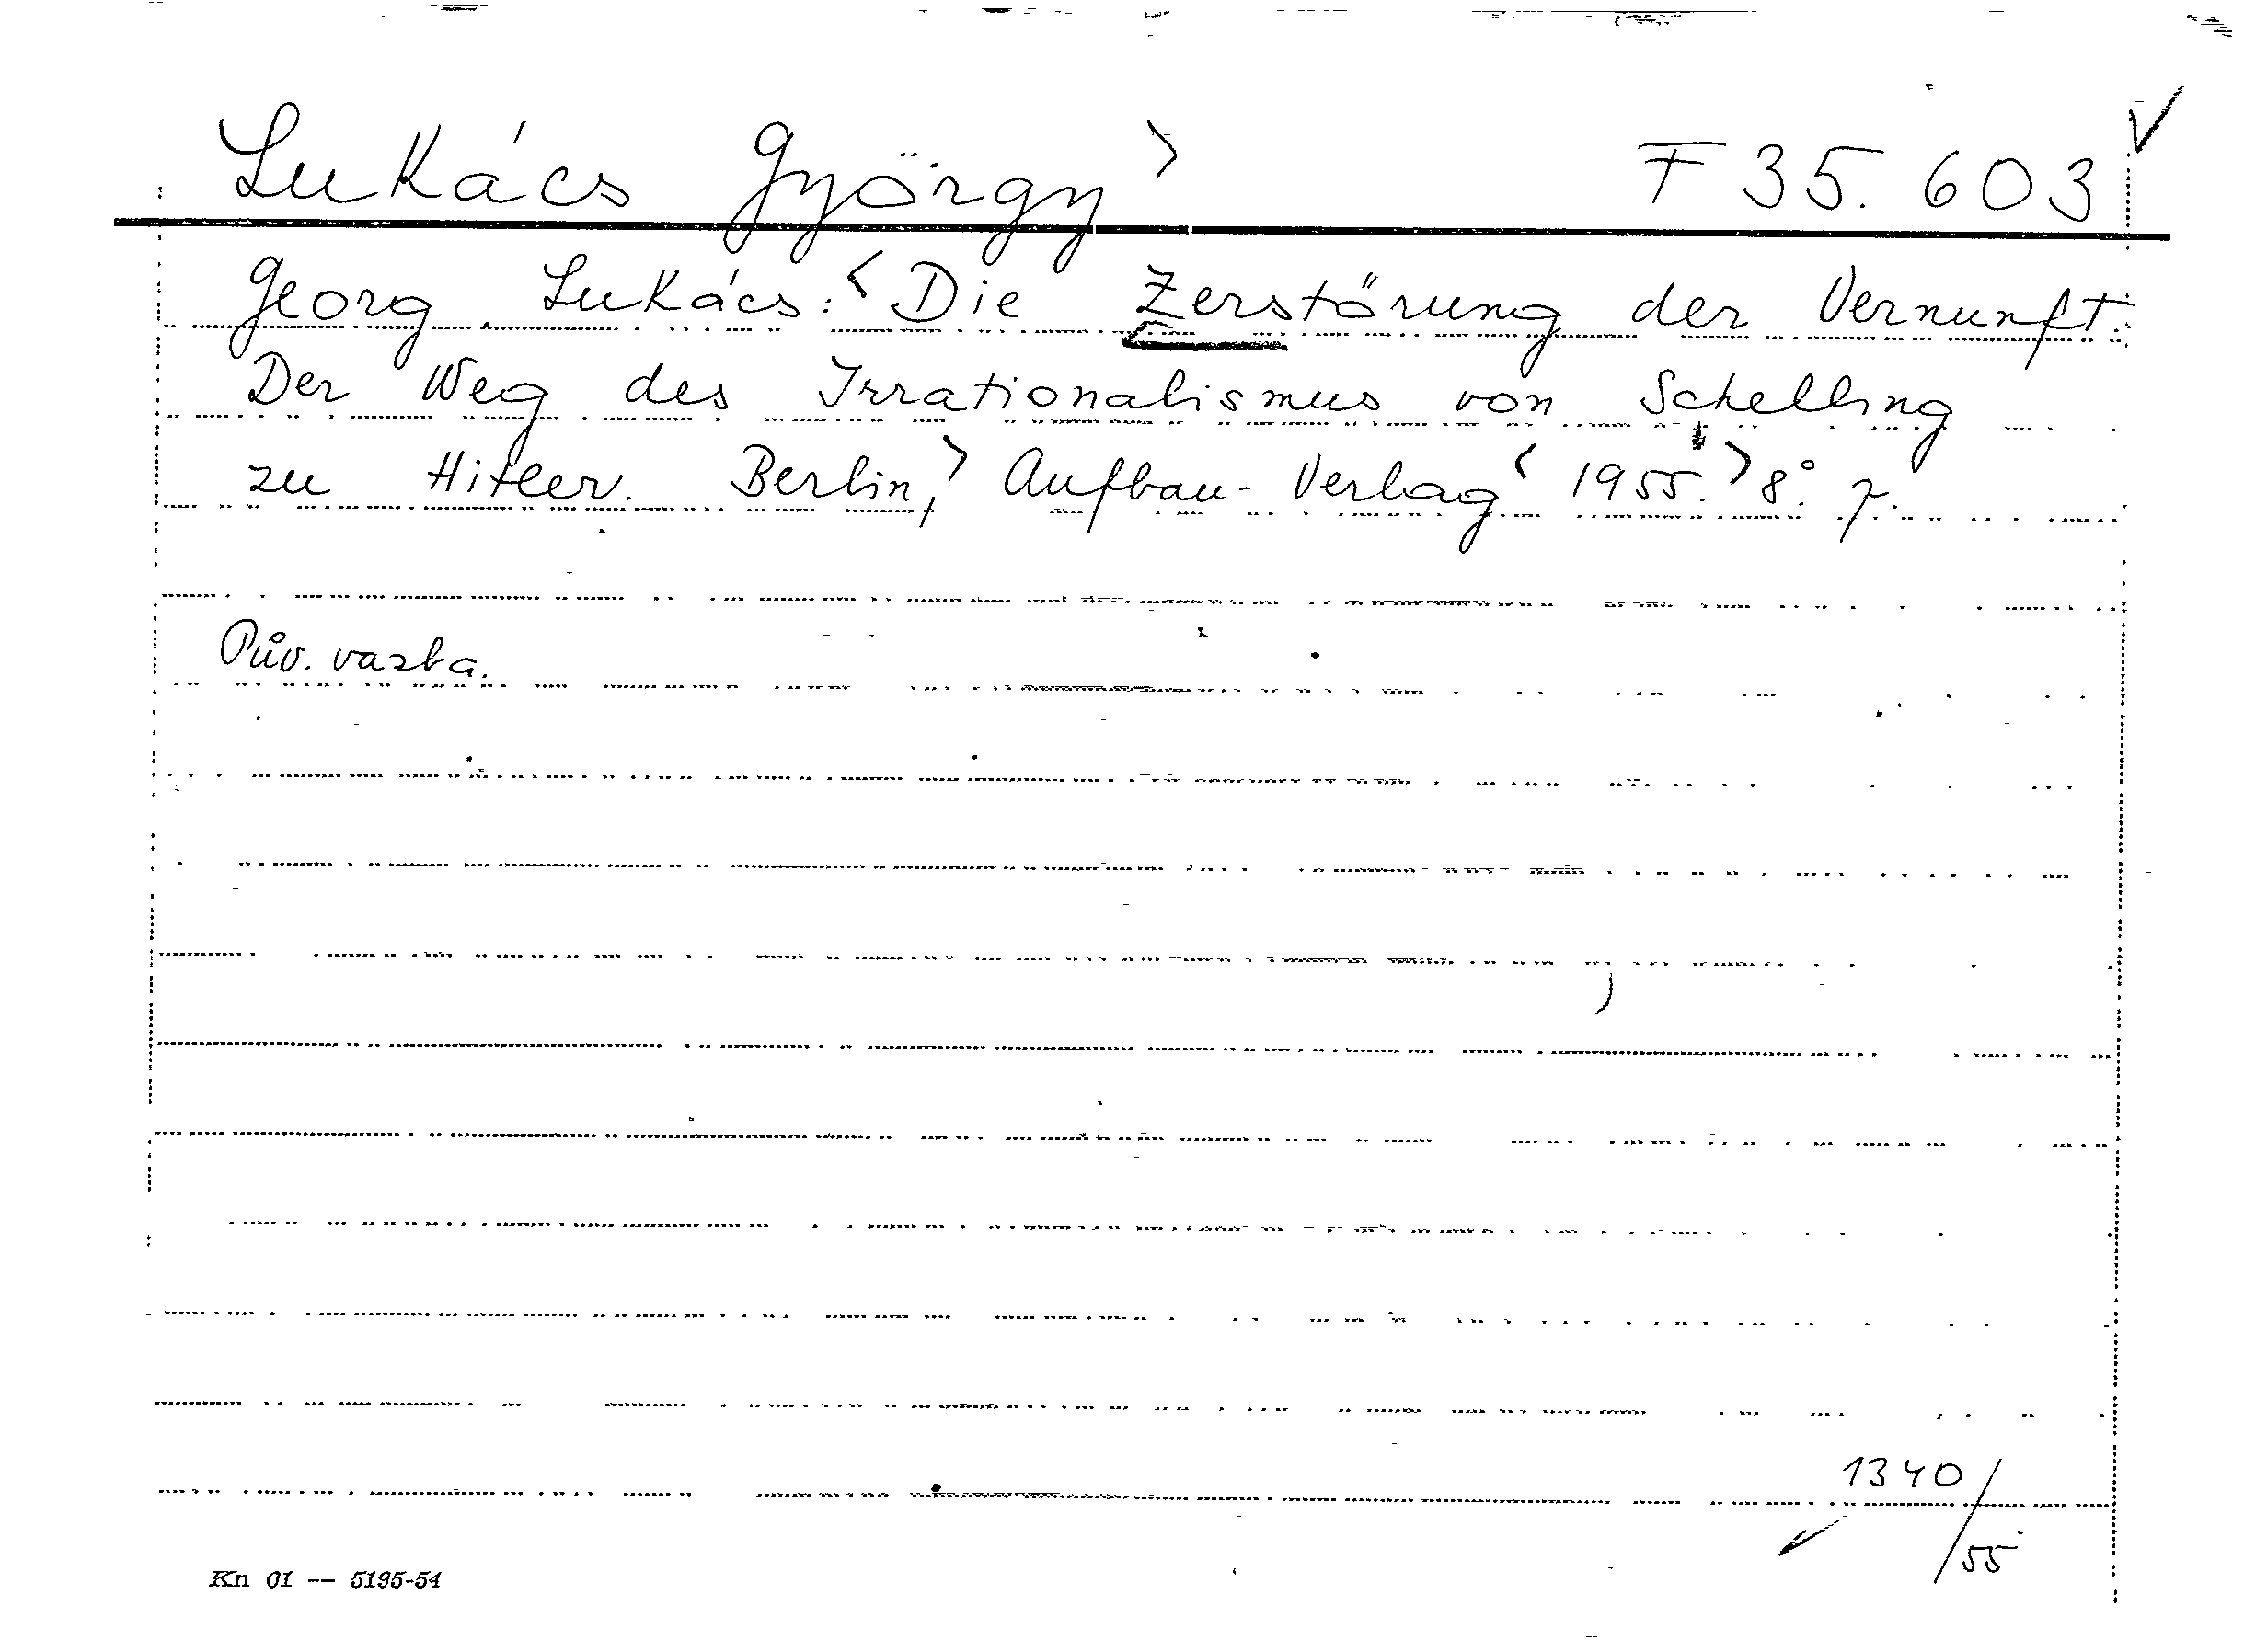 Lukács György> F 35.603
Georg Lukács: <Die Zerstörung der Vernunft.
Der Weg des Irrationalismus von Schelling
zu Hitler. Berlin,> Aufbau-Verlag <1955.> 8°. p.
Pův. vazba.
1340/
/55
Kn 01 -- 5195-54